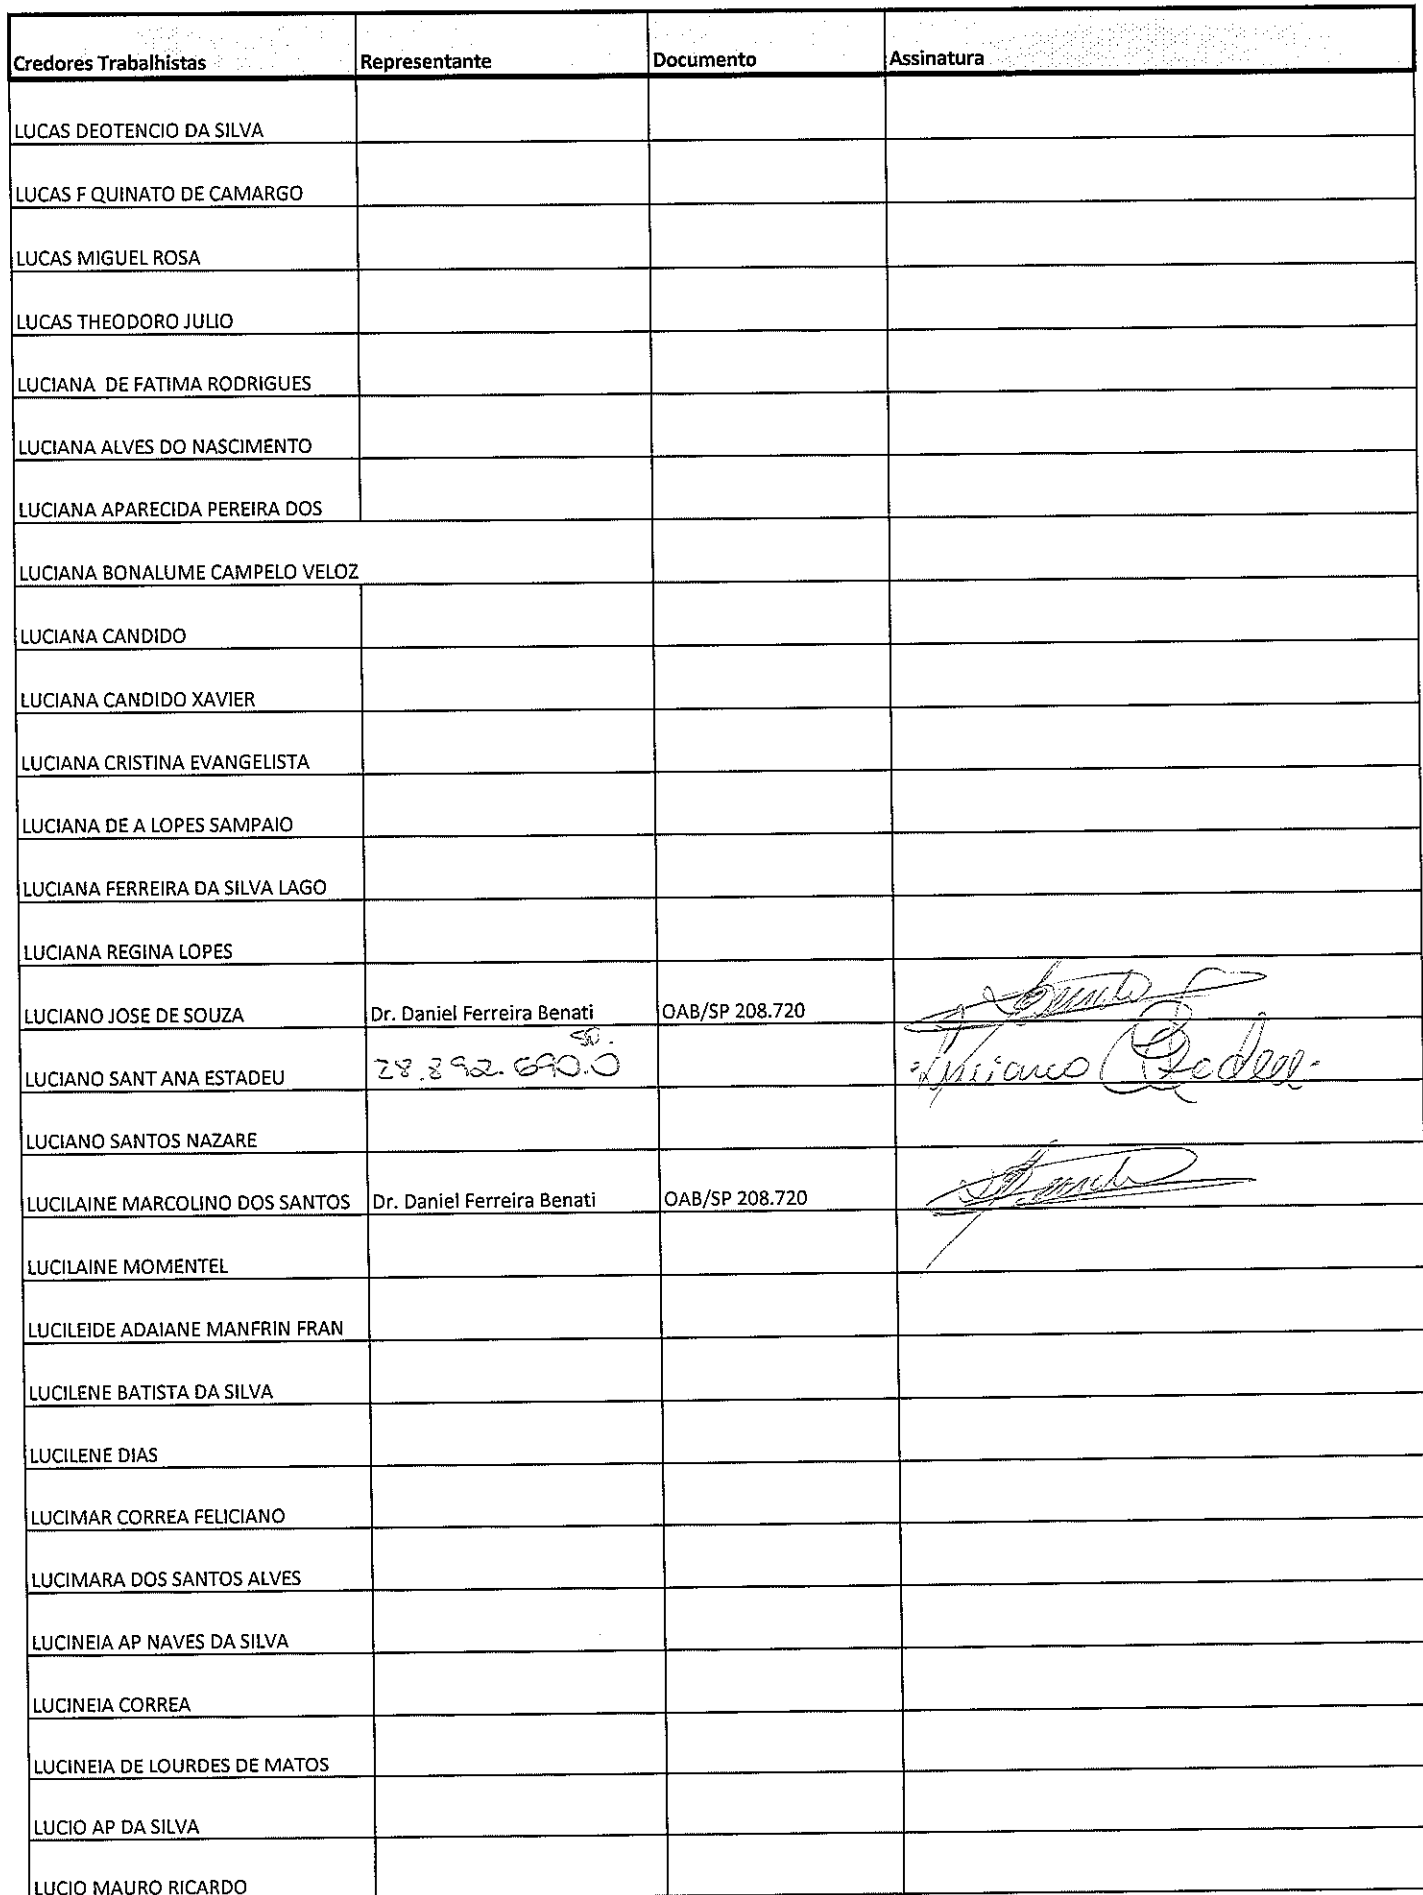 Credores Trabalhistas Representante Documento Assinatura
LUCAS DEOTENCIO DA SILVA
LUCAS F QUINATO DE CAMARGO
LUCAS MIGUEL ROSA
LUCAS THEODORO JULIO
LUCIANA DE FATIMA RODRIGUES
LUCIANA ALVES DO NASCIMENTO
LUCIANA APARECIDA PEREIRA DOS
LUCIANA BONALUME CAMPELO VELOZ
LUCIANA CANDIDO
LUCIANA CANDIDO XAVIER
LUCIANA CRISTINA EVANGELISTA
LUCIANA DE A LOPES SAMPAIO
LUCIANA FERREIRA DA SILVA LAGO
LUCIANA REGINA LOPES
LUCIANO JOSE DE SOUZA Dr. Daniel Ferreira Benati OAB/SP 208.720
LUCIANO SANT ANA ESTADEU 28.892.690.0 Luciano
LUCIANO SANTOS NAZARE
LUCILAINE MARCOLINO DOS SANTOS Dr. Daniel Ferreira Benati OAB/SP 208.720
LUCILAINE MOMENTEL
LUCILEIDE ADAIANE MANFRIN FRAN
LUCILENE BATISTA DA SILVA
LUCILENE DIAS
LUCIMAR CORREA FELICIANO
LUCIMARA DOS SANTOS ALVES
LUCINEIA AP NAVES DA SILVA
LUCINEIA CORREA
LUCINEIA DE LOURDES DE MATOS
LUCIO AP DA SILVA
LUCIO MAURO RICARDO